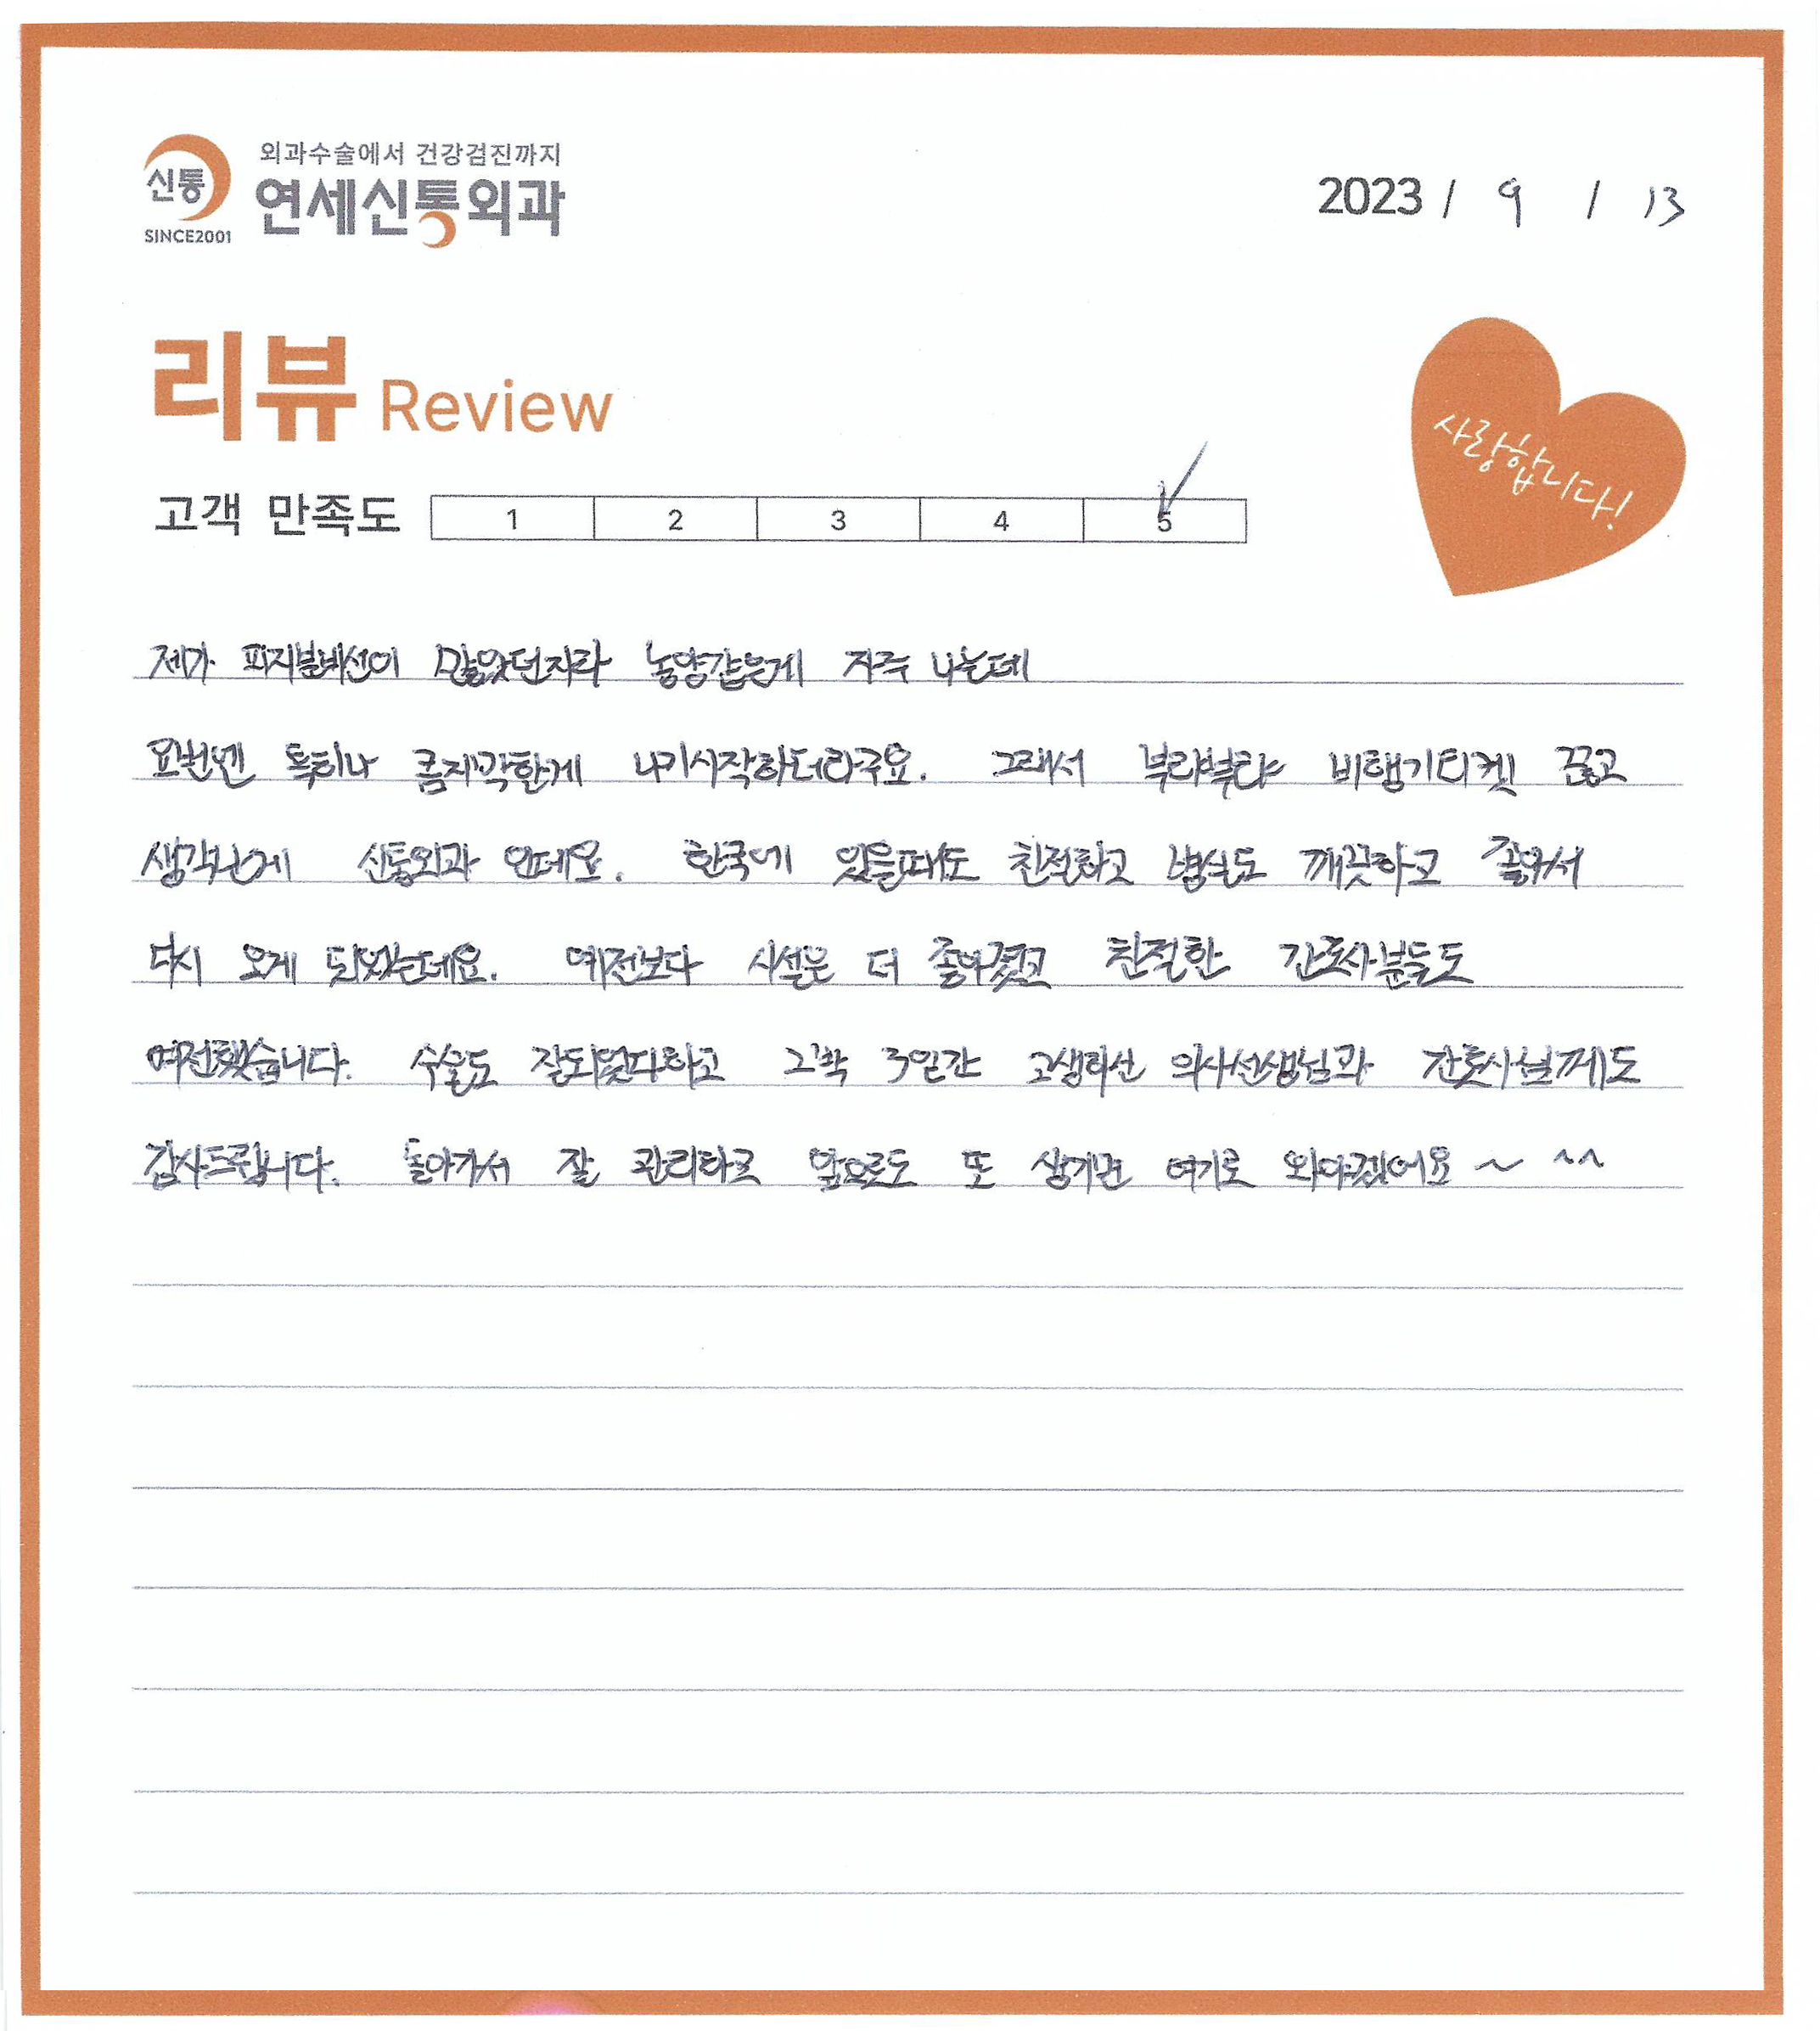 외과수술에서 건강검진까지
신통 연세신통외과
SINCE2001
2023 / 9 / 13
리뷰 Review
사랑합니다!
고객 만족도 1 2 3 4 5
제가 피지불비선이 많았던지라 농양같은게 자주 나는데
요번엔 특히나 큼지막한게 나기시작하더라구요. 그래서 부랴부랴 비행기티켓 끊고
생각난게 신통외과 인데요. 한국에 있을때도 친절하고 병실도 깨끗하고 좋아서
다시 오게 되었는데요. 예전보다 시설은 더 좋아졌고 친절한 간호사분들도
여전했습니다. 수술도 잘되었다하고 3일간 고생하신 의사선생님과 간호사님께도
감사드립니다. 돌아가서 잘 관리하고 앞으로도 또 생기면 여기로 와야겠어요~ ^^